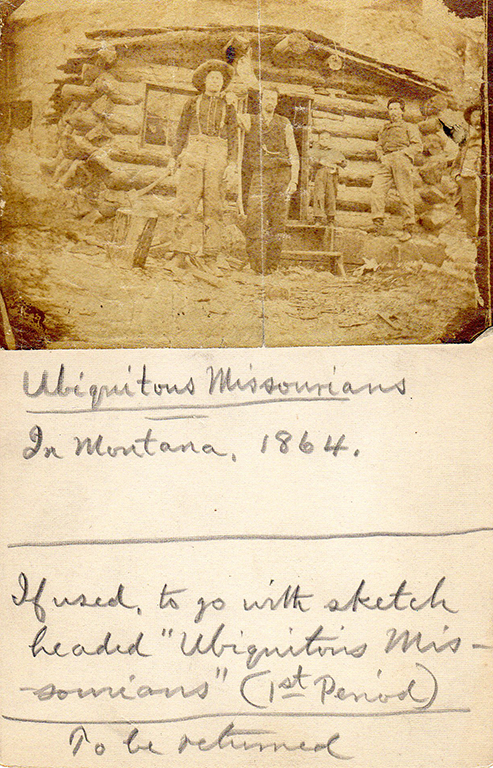 Ubiquitous Missourians
In Montana, 1864.
If used, to go with sketch
headed "Ubiquitous Mis-
-sourians" (1st Period)
To be returned